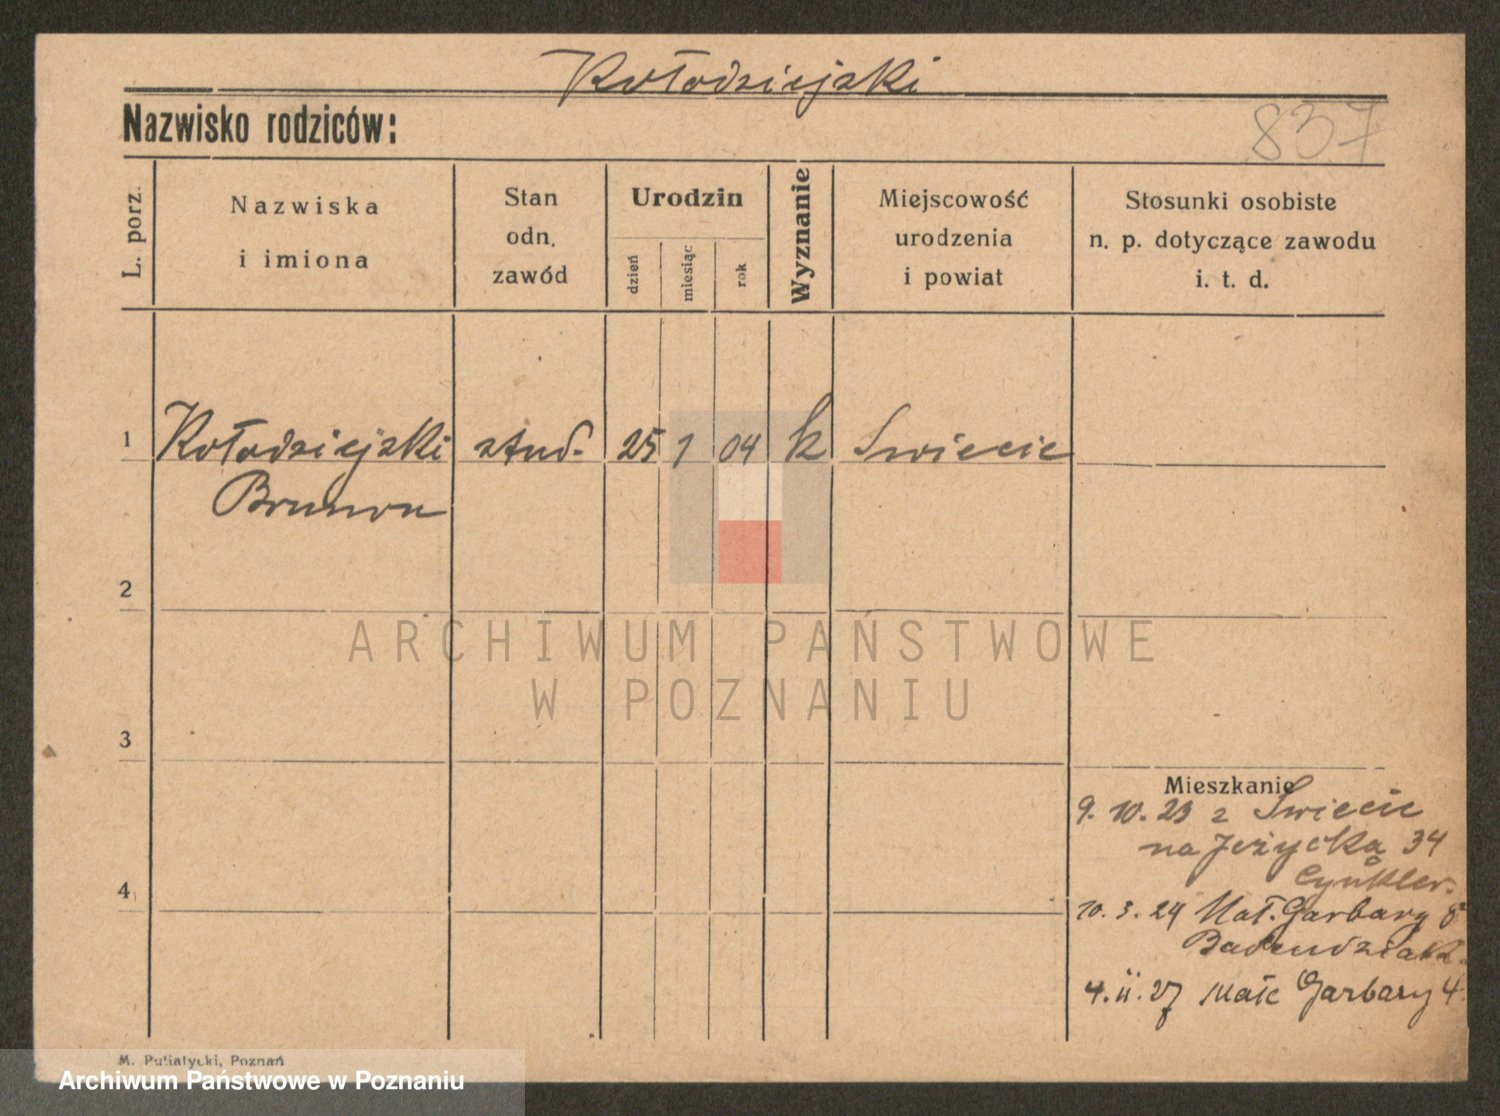 Kołodziejski
Nazwisko rodziców:
837
L. porz.
Nazwiska
i imiona
Stan
odn.
zawód
Urodzin
dzień
miesiąc
rok
Wyznanie
Miejscowość
urodzenia
i powiat
Stosunki osobiste
n. p. dotyczące zawodu
i. t. d.
1 Kołodziejski stud. 25 1 04 k Swiecie
Brunon
2
ARCHIWUM PAŃSTWOWE
W POZNANIU
3
Mieszkanie
9. 10. 23 z Swiecie
na Jeżycka 34
Cynkler.
4
10. 3. 24 Mał. Garbary
4. 11. 27 Małe Garbary 4.
M. Putiatycki, Poznań
Archiwum Państwowe w Poznaniu